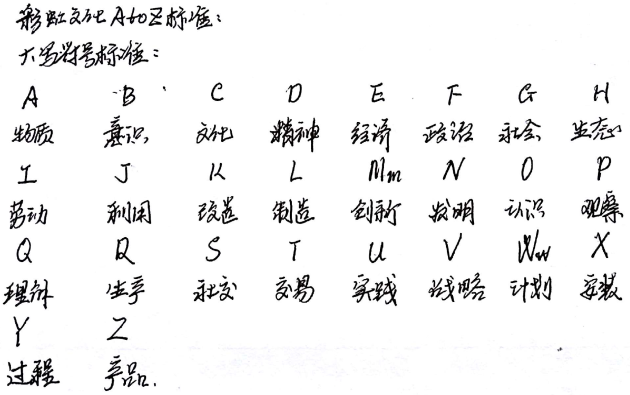 彩虹文化A to Z标准：
大写符号标准：
A B C D E F G H
物质 意识 文化 精神 经济 政治 社会 生态
I J K L Mm N O P
劳动 利用 改造 制造 创新 发明 认识 观察
Q R S T U V Ww X
理解 生产 社交 交易 实践 战略 计划 安装
Y Z
过程 产品.